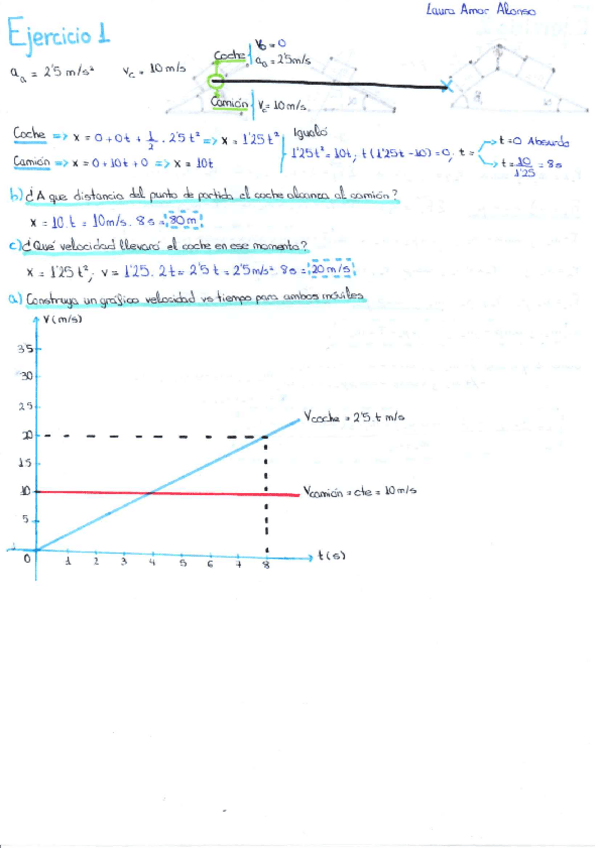 Laura Amor Alonso
Ejercicio 1
a_a = 2'5 m/s² v_c = 10 m/s
Coche v_0 = 0
a_0 = 2'5 m/s
Camión v_c = 10 m/s.
Coche => x = 0 + 0t + 1/2 · 2'5 t² => x = 1'25 t²
Camión => x = 0 + 10t + 0 => x = 10t
Igualo
1'25t² = 10t; t(1'25t - 10) = 0; t =
t = 0 Absurdo
t = 10/1'25 = 8s
b) ¿A que distancia del punto de partida el coche alcanza al camión?
x = 10 · t = 10 m/s · 8 s = 80 m
c) ¿Qué velocidad llevará el coche en ese momento?
x = 1'25 t²; v = 1'25 · 2t = 2'5 t = 2'5 m/s² · 8s = 20 m/s
a) Construya un gráfico velocidad vs tiempo para ambos móviles
v (m/s)
35
30
25
20
15
10
5
0 1 2 3 4 5 6 7 8 t (s)
Vcoche = 2'5 · t m/s
Vcamión = cte = 10 m/s